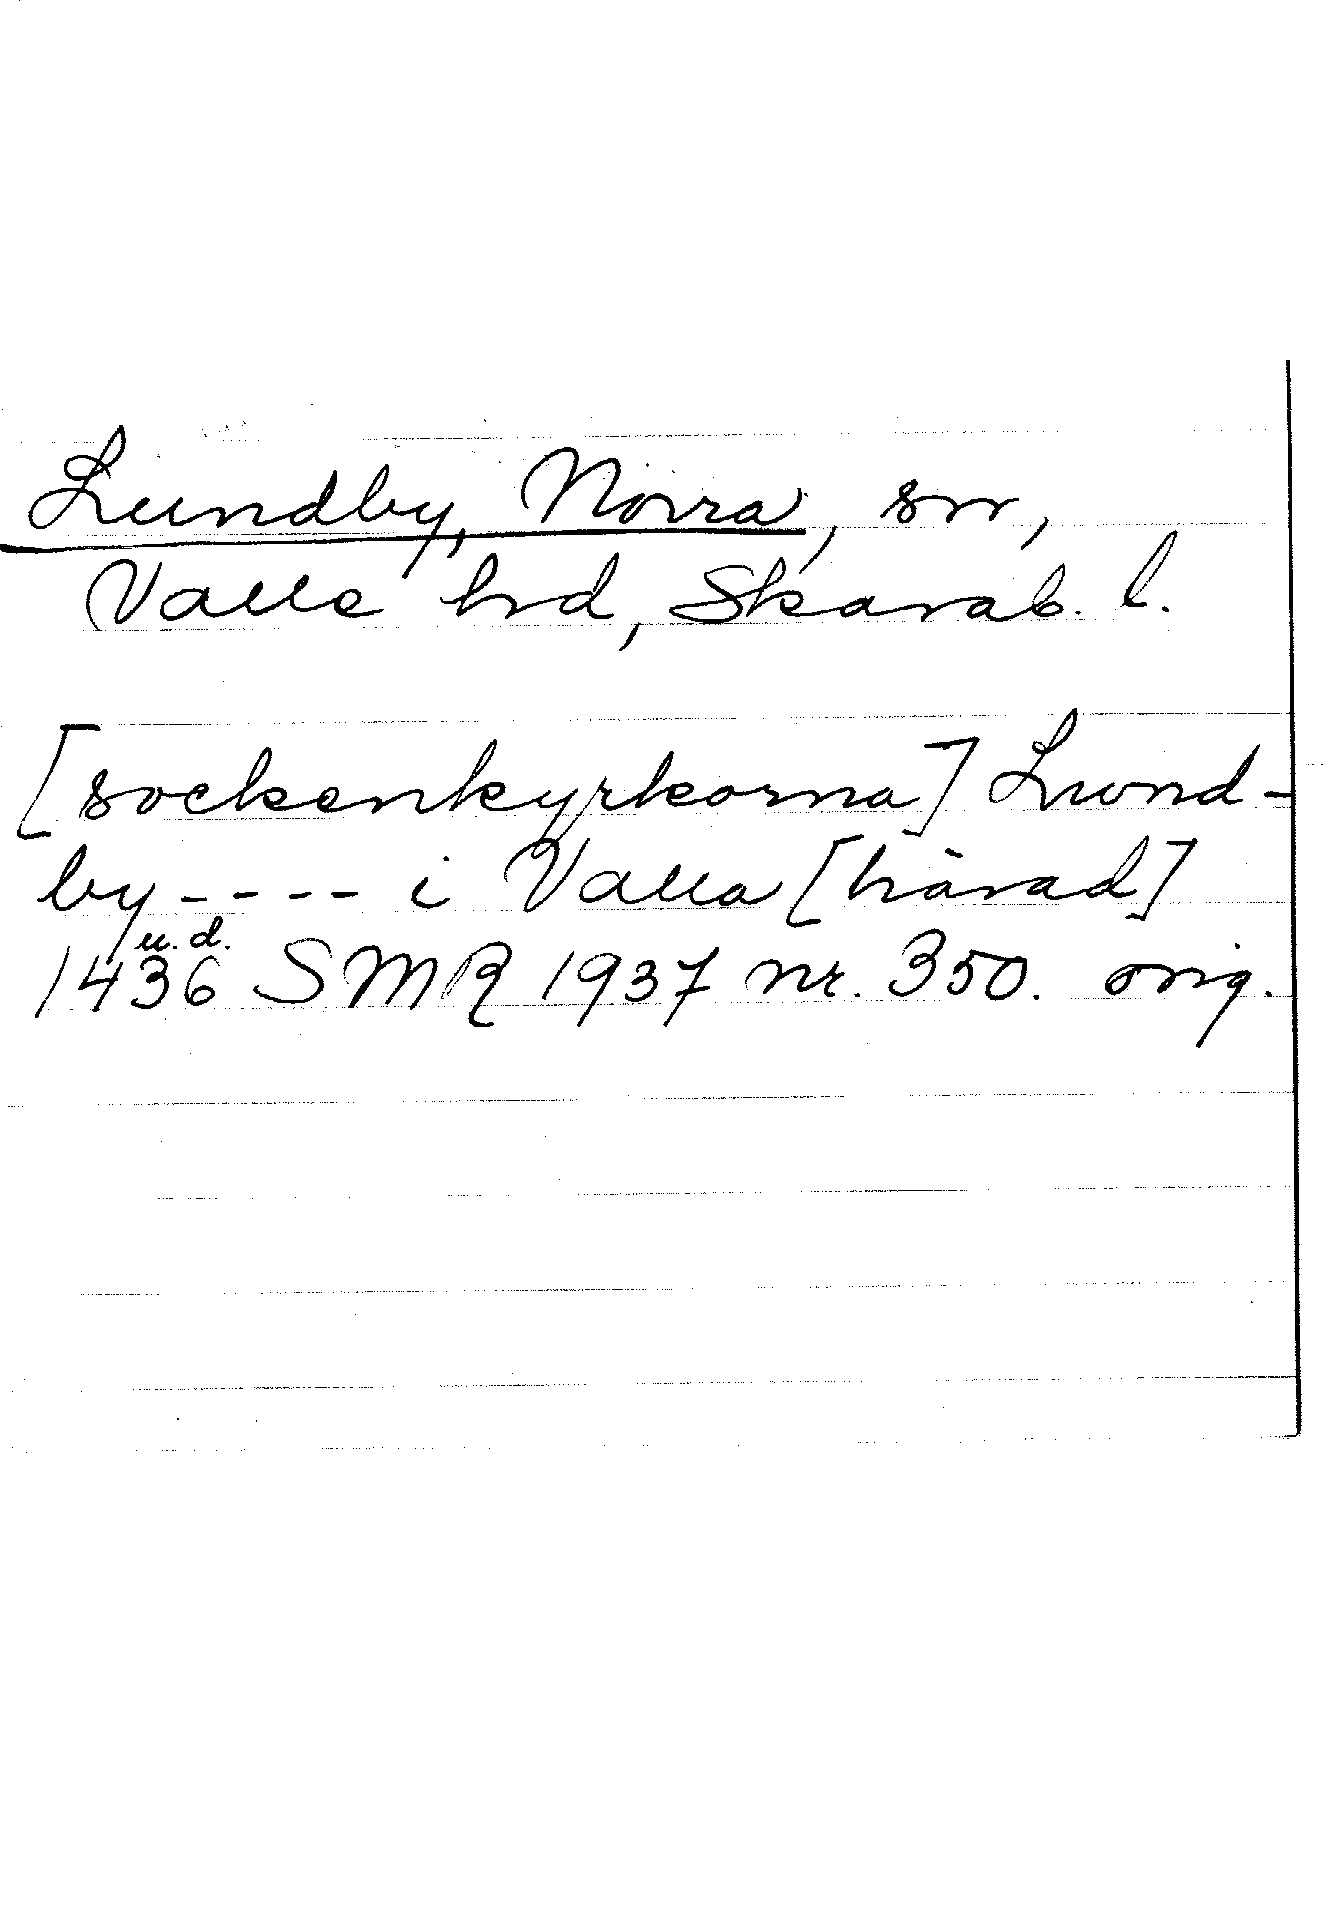 Lundby, Norra, sn,
Valle hrd, Skarab. l.
[sockenkyrkorna] Lwnd-
by ---- i Valla [härad]
u.d.
1436 SMR 1937 nr. 350. orig.